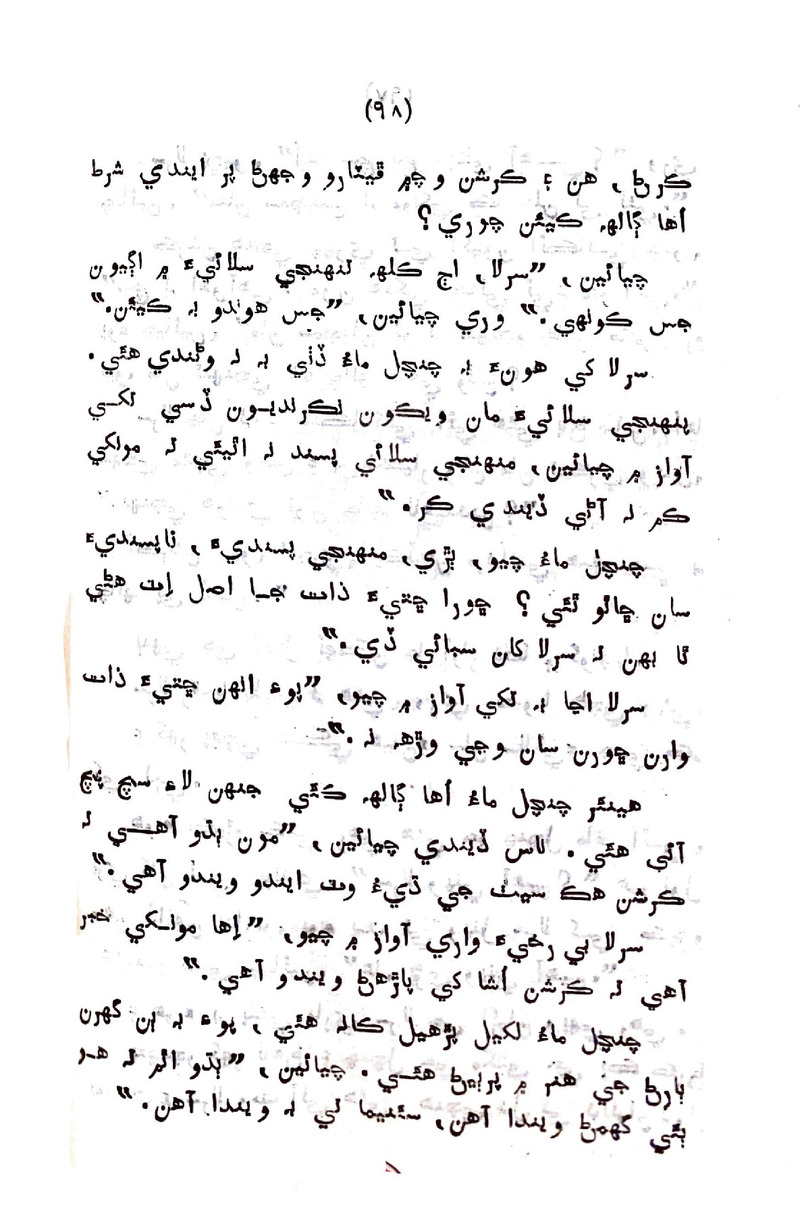 (٩٨)
ڪرڻ، هن ۽ ڪرشن وچ۾ ڦيٽارو وجهڻ پر ايندي شرط
اُها ڳالهہ ڪيئن چوري؟
چيائين، ”سرلا، اڄ ڪلهہ تنهنجي سلائيءَ ۾ اڳيون
جس ڪونهي.“ وري چيائين، ”جس هوندو بہ ڪيئن.“
سرلا کي هونءَ بہ چنچل ماءُ ڏٺي بہ نہ وڻندي هئي.
پنهنجي سلائيءَ مان ويڪون نڪرنديون ڏسي تکي
آواز ۾ چيائين، منهنجي سلائي پسند نہ اٿيئي تہ مونکي
ڪم نہ آڻي ڏيندي ڪر.“
چنچل ماءُ چيو، پڙي، منهنجي پسنديءَ، ناپسنديءَ
سان ڇاٿو ٿئي؟ ڇورا ڇتيءَ ذات جا اصل اِٽ هڻي
ٿا ٻهن تہ سرلا کان سبائي ڏي.“
سرلا اڃا بہ تکي آواز ۾ چيو، ”پوءِ انهن ڇتيءَ ذات
وارن ڇورن سان وڃي وڙهہ نہ.“
هينئر چنچل ماءُ اُها ڳالهہ ڪئي جنهن لاءِ سچ پچ
آئي هئي. ٽاس ڏيندي چيائين، ”مون ٻڌو آهي تہ
ڪرشن هڪ سيٺ جي ڌيءُ وٽ ايندو ويندو آهي.“
سرلا بي رخيءَ واري آواز ۾ چيو، ”اِها مونکي خبر
آهي تہ ڪرشن اُشا کي پاڙهڻ ويندو آهي.“
چنچل ماءُ لکيل پڙهيل ڪانہ هئي، پوءِ بہ ٻن گهرن
ٻارڻ جي هنر ۾ پربين هئي. چيائين، ”ٻڌو اٿم تہ هو
ٻئي گهمڻ ويندا آهن، سئنيما تي بہ ويندا آهن.“